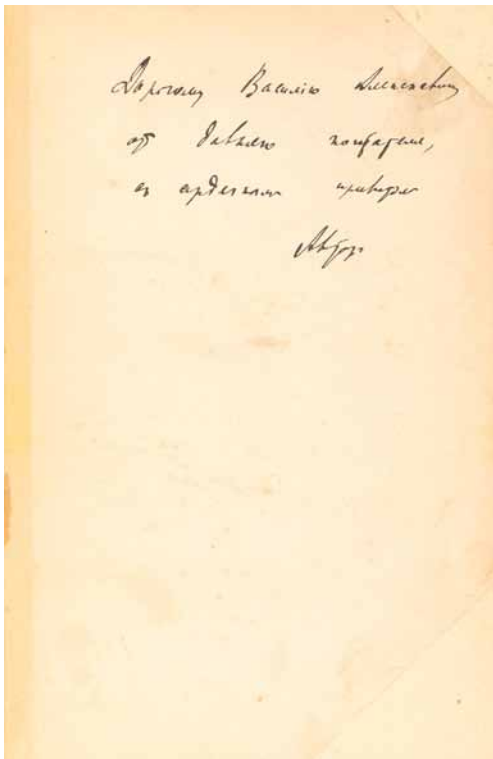 Дорогому Василію Алексеевичу
отъ давняго почитателя,
съ сердечнымъ привѣтомъ
Авторъ